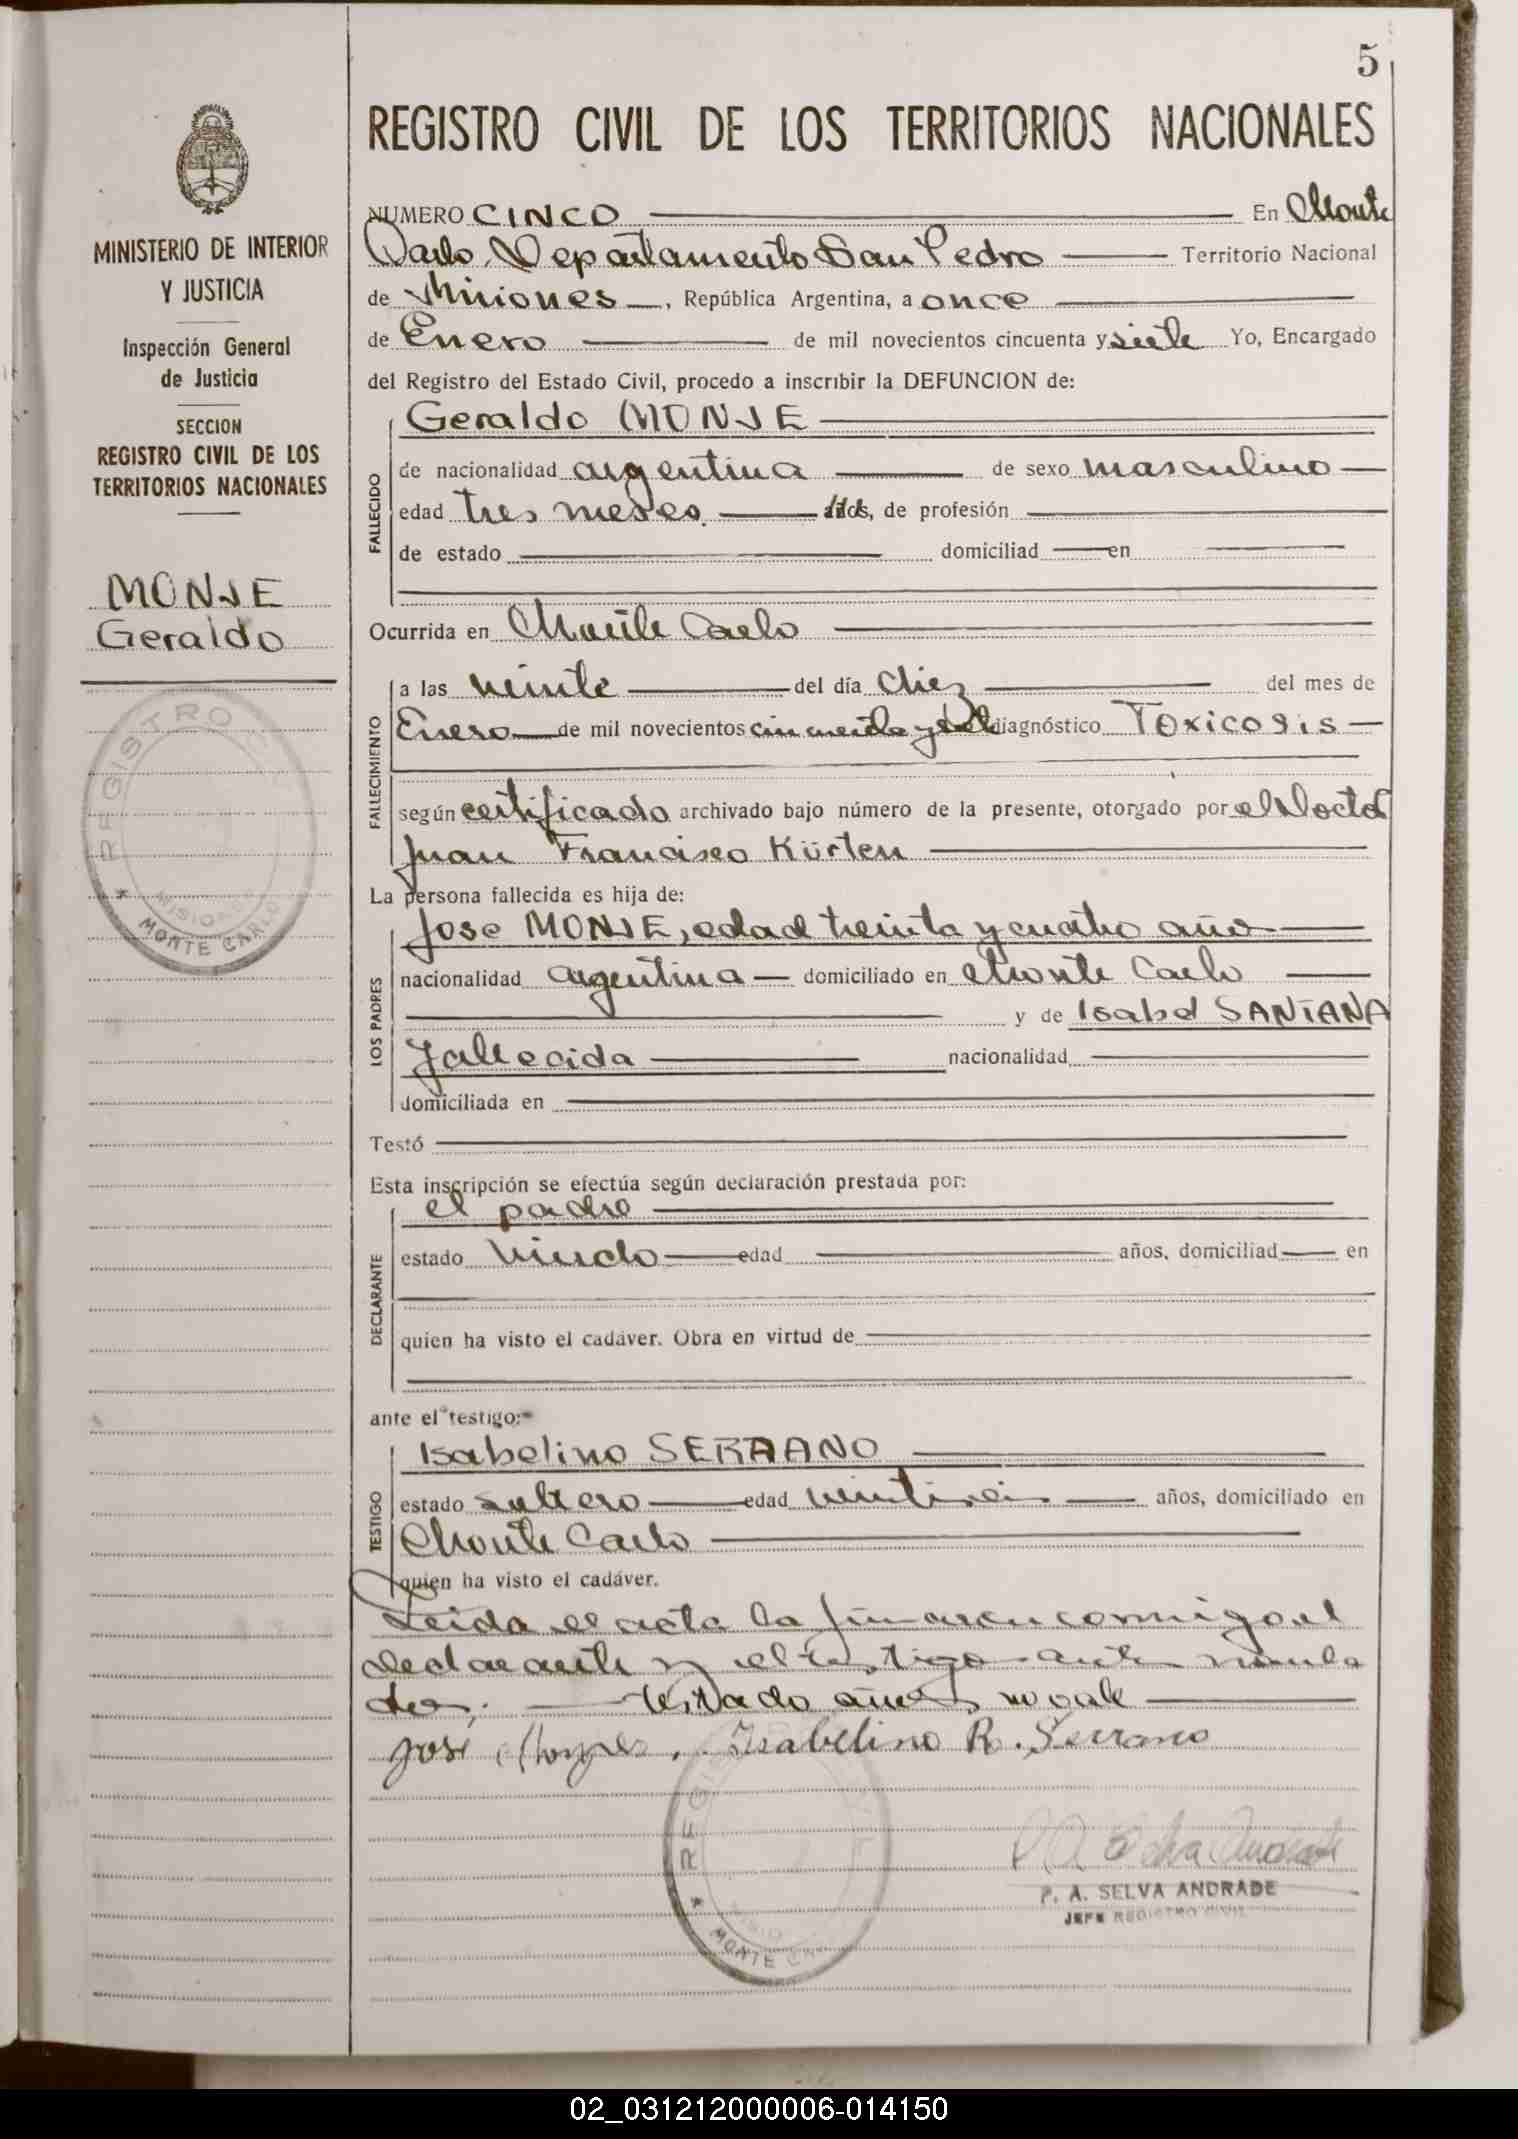 5
REGISTRO CIVIL DE LOS TERRITORIOS NACIONALES
MINISTERIO DE INTERIOR
Y JUSTICIA
Inspección General
de Justicia
SECCION
REGISTRO CIVIL DE LOS
TERRITORIOS NACIONALES
MONJE
Geraldo
REGISTRO
MISIONES
MONTE CARLO
NUMERO CINCO En Monte
Carlo, Departamento San Pedro Territorio Nacional
de Misiones, República Argentina, a once
de Enero de mil novecientos cincuenta y siete Yo, Encargado
del Registro del Estado Civil, procedo a inscribir la DEFUNCION de:
Geraldo MONJE
FALLECIDO
de nacionalidad argentina de sexo masculino
edad tres meses años, de profesión
de estado domiciliad en
Ocurrida en Monte Carlo
FALLECIMIENTO
a las veinte del día diez del mes de
Enero de mil novecientos cincuenta y siete diagnóstico Toxicosis
según certificado archivado bajo número de la presente, otorgado por el Doctor
Juan Francisco Kürten
La persona fallecida es hija de:
LOS PADRES
Jose MONJE, edad treinta y cuatro años
nacionalidad argentina domiciliado en Monte Carlo
y de Isabel SANTANA
fallecida nacionalidad
domiciliada en
Testó
Esta inscripción se efectúa según declaración prestada por:
DECLARANTE
el padre
estado viudo edad años, domiciliad en
quien ha visto el cadáver. Obra en virtud de
ante el testigo:
TESTIGO
Isabelino SERRANO
estado soltero edad veintiseis años, domiciliado en
Monte Carlo
quien ha visto el cadáver.
Leida el acta la firman conmigo el
declarante y el testigo antes nombra
dos; testado años no vale
Jose Isabelino R. Serrano
REGIS
MONTE CA
P. A. SELVA ANDRADE
JEFE REGISTRO CIVIL
02_031212000006-014150